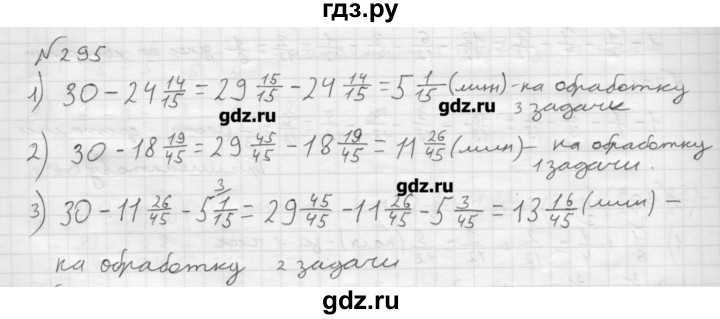 гдз.ру
№295
1) 30 − 24 14/15 = 29 15/15 − 24 14/15 = 5 1/15 (мин) - на обработку
3 задачи
gdz.ru
gdz.ru
2) 30 − 18 19/45 = 29 45/45 − 18 19/45 = 11 26/45 (мин) - на обработку
1 задачи.
gdz.ru
3) 30 − 11 26/45 − 5 1/15 ³⁄ = 29 45/45 − 11 26/45 − 5 3/45 = 13 16/45 (мин) -
на обработку 2 задачи
gdz.ru